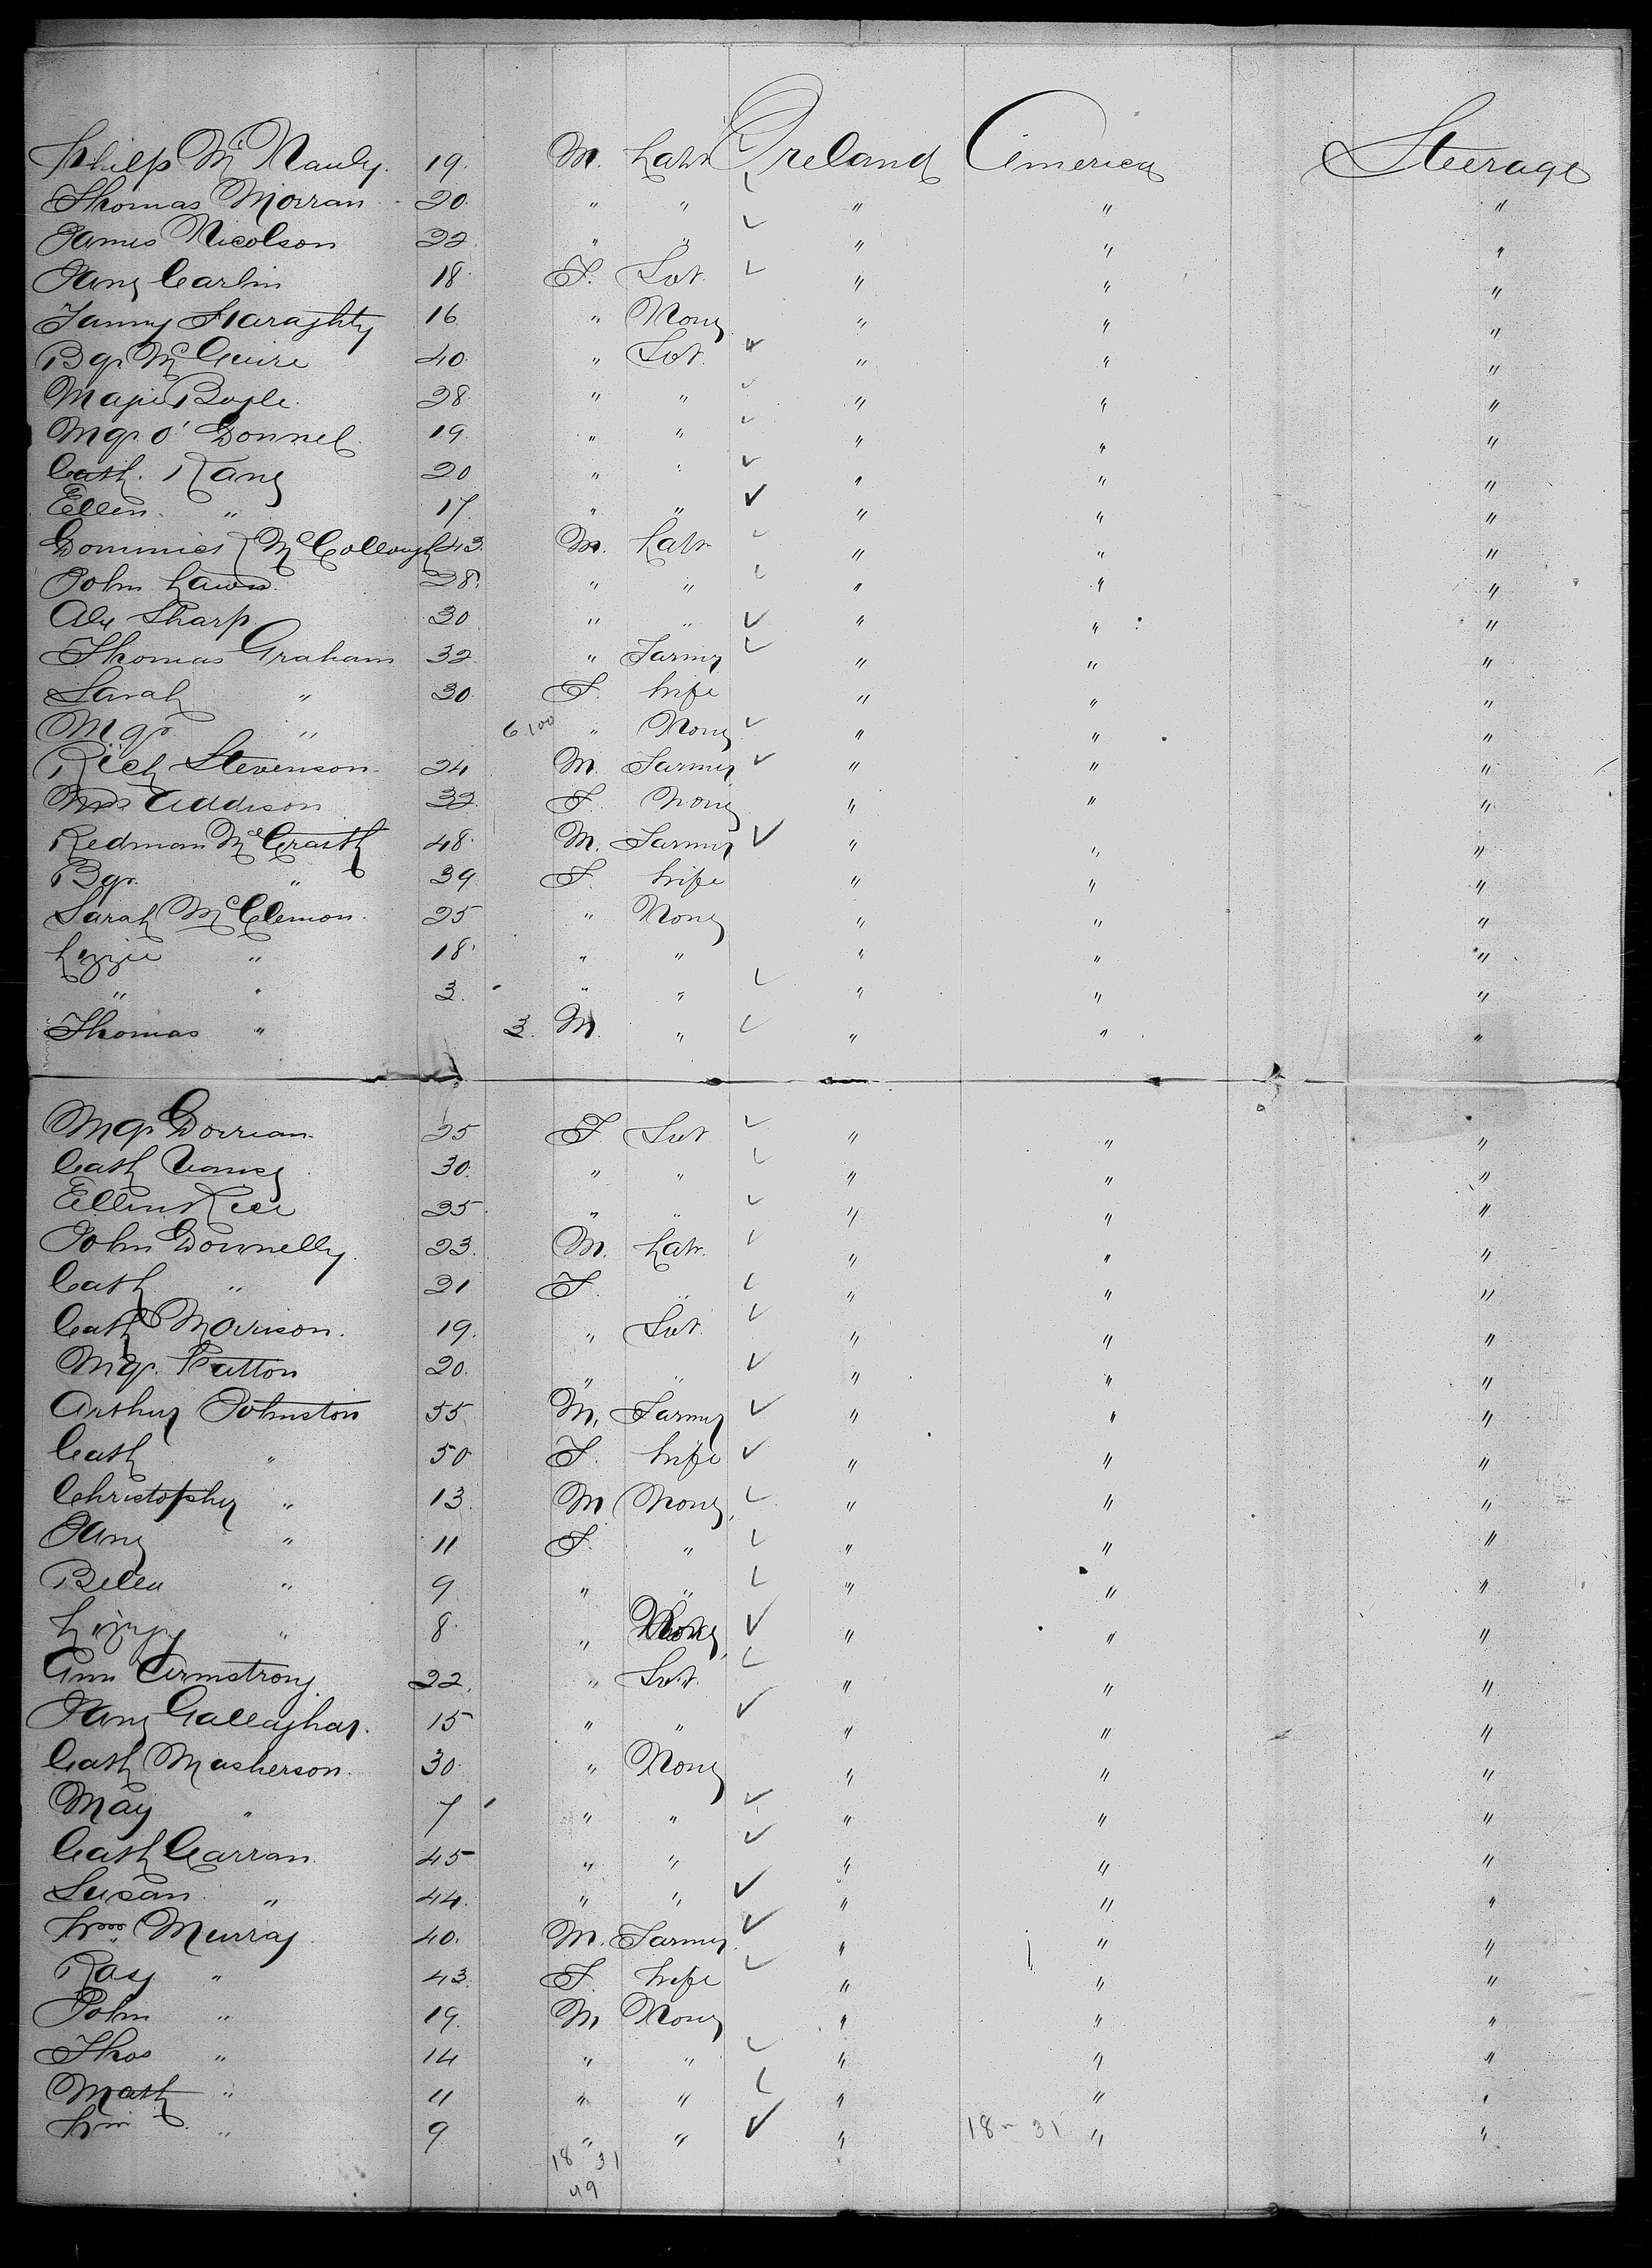 Philip McNauly. 19. M. Labr Ireland America Steerage
Thomas Morran 20. " " " " "
James Nicolson 22. " " " " "
Jane Carlin 18. F. Svt. " " "
Fanny Flaraghty 16 " None " " "
Bgt. McGuire 40. " Svt. " " "
Magie Boyle. 28. " " " " "
Mgt. O'Donnel. 19. " " " " "
Cath. Kane 20 " " " " "
Ellen. " 17. " " " " "
Dominick McCollough 43. M. Labr " " "
John Lawn. 28. " " " " "
Alex Sharp. 30 " " " " "
Thomas Graham 32. " Farmer " " "
Sarah " 30. F. Wife " " "
Mgt. " 6/00 " None " " "
Rich Stevenson. 24 M. Farmer " " "
Mrs Addison 32. F. None " " "
Redman McGrath 48. M. Farmer " " "
Bgt. " 39. F. Wife " " "
Sarah McClemon. 25 " None " " "
Lizzie " 18. " " " " "
" " 3. " " " " "
Thomas " 3. M. " " " "
Mgt. Dorrian. 25 F. Svt " " "
Cath 30. " " " " "
Ellen Kee 25. " " " " "
John Donnelly. 23. M. Labr. " " "
Cath " 21 F. " " " "
Cath Morrison. 19. " Svt. " " "
Mgt. Patton 20. " " " " "
Arthur Johnston 55. M. Farmer " " "
Cath " 50 F. Wife " " "
Christopher " 13. M None " " "
Jane " 11 F. " " " "
Bella " 9 " " " "
Lizzy " 8. " None " " "
Ann Armstrong. 22. " Svt. " " "
Jane Gallaghar. 15 " " " " "
Cath Masherson. 30. " None " " "
May " 7 " " " " "
Cath Carran. 45 " " " " "
Susan. " 44. " " " " "
Wm Murray. 40. M. Farmer. " " "
Rosy " 43. F. Wife " " "
John " 19. M None " " "
Thos " 14 " " " " "
Math " 11 " " " " "
Wm " 9 " " " 18 - 31 " "
18 31
49